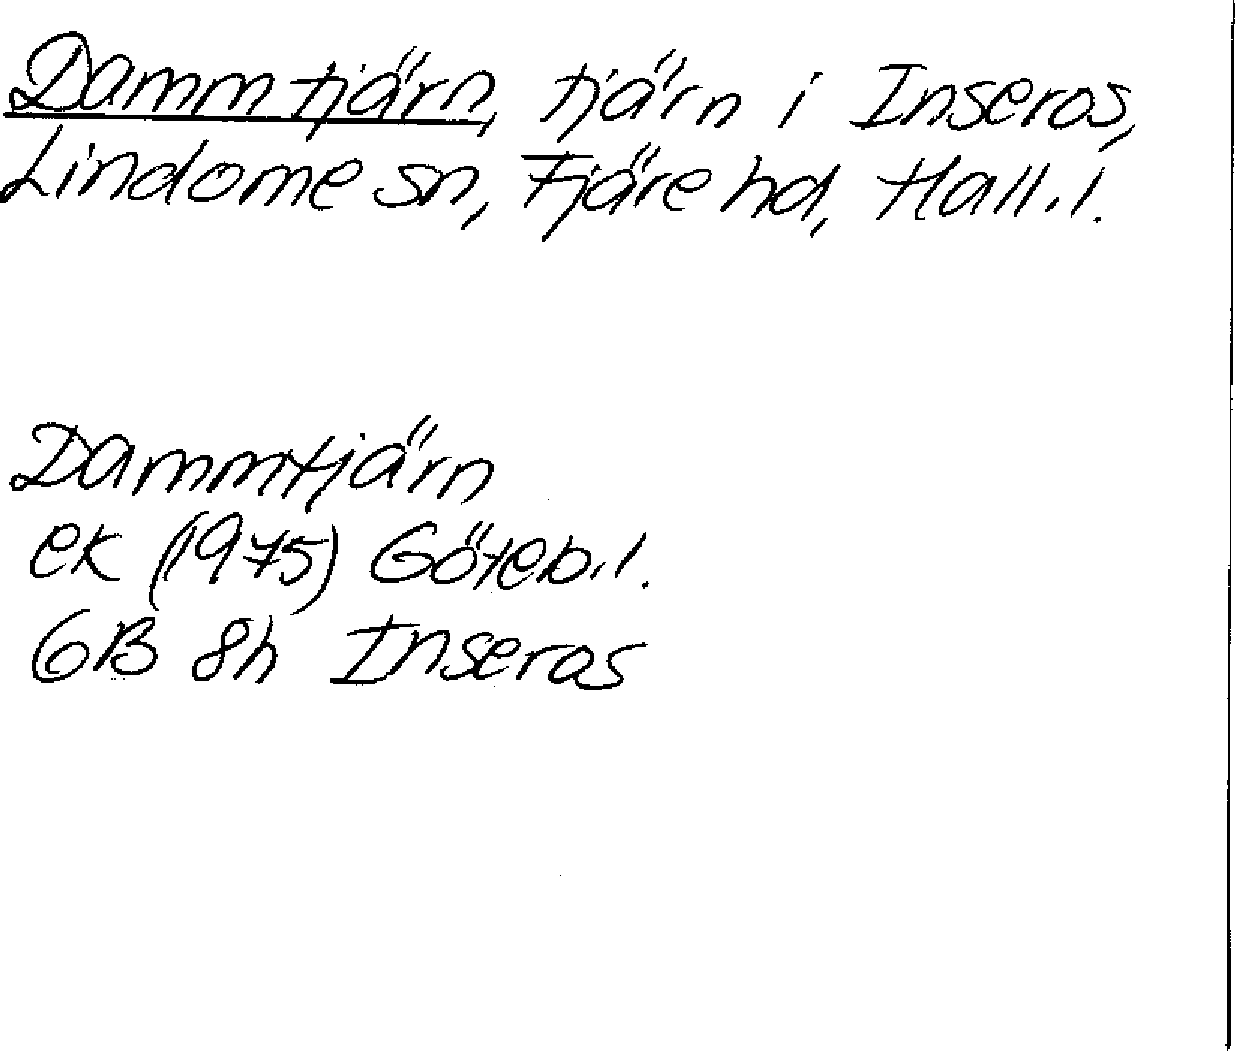 Dammtjärn, tjärn i Inseros,
Lindome sn, Fjäre hd, Hall.l.
Dammtjärn
ek (1975) Göteb.l.
6B 8h Inseros